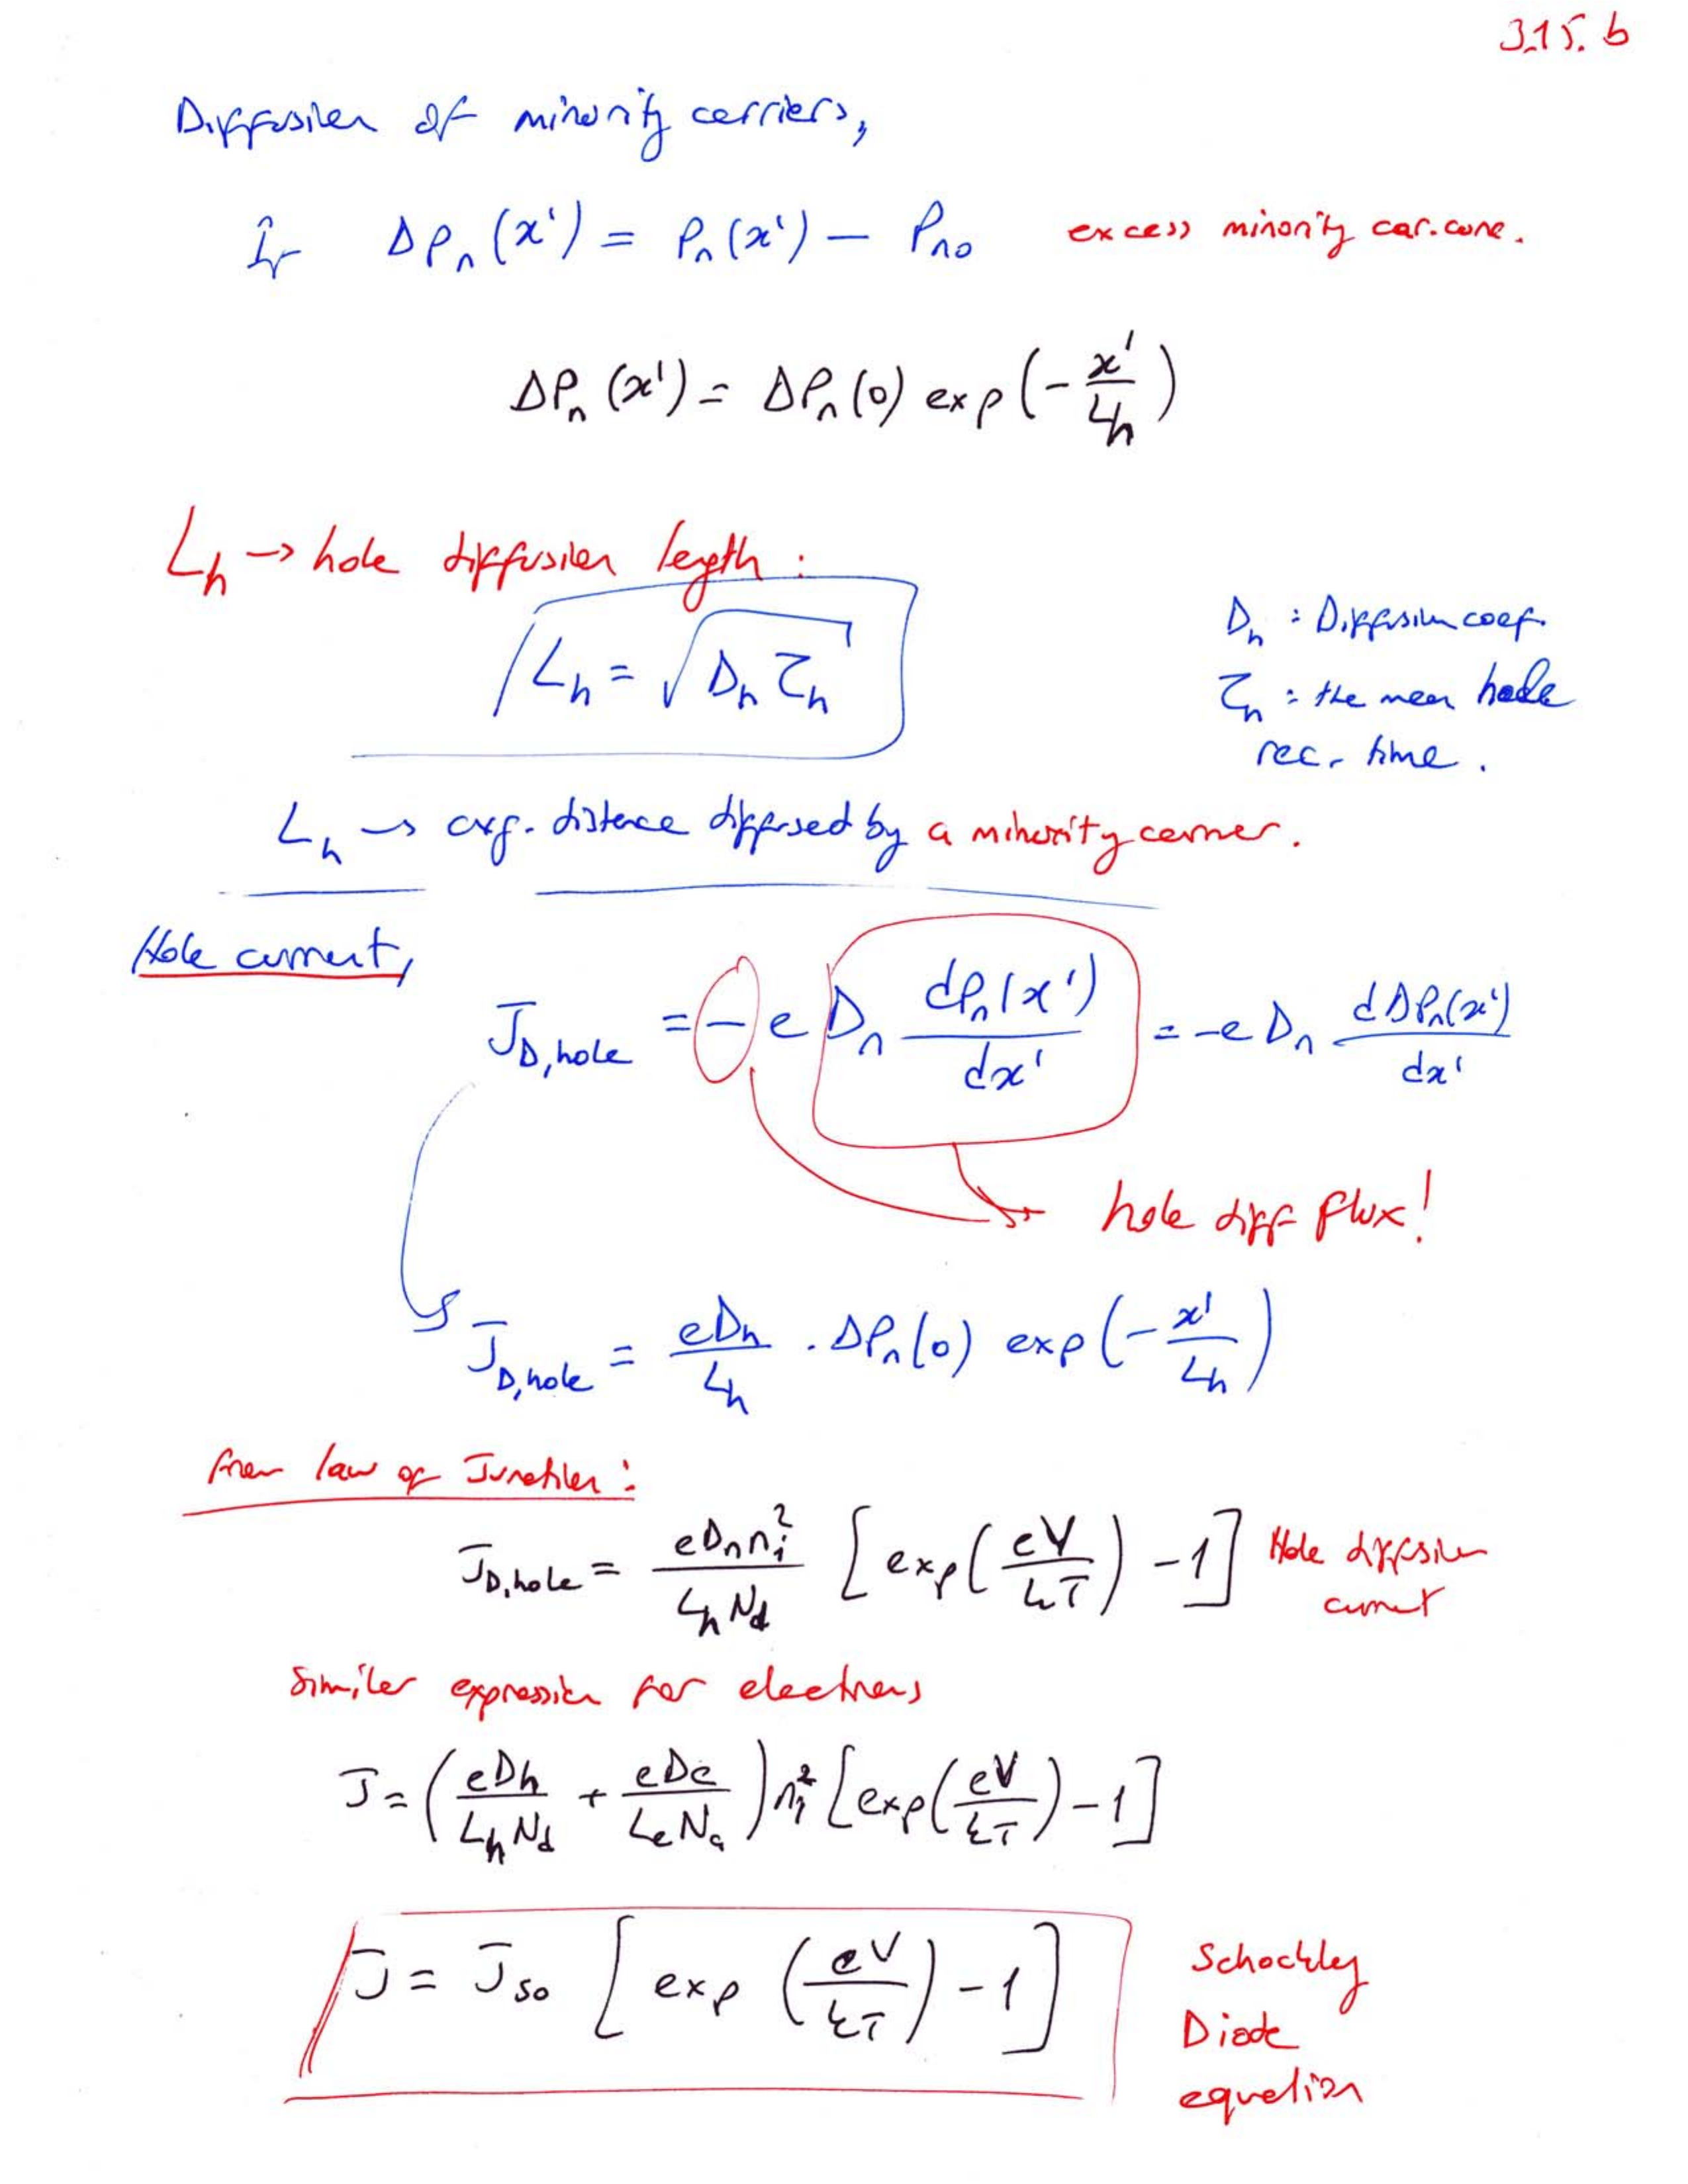 3.15.b
Diffusion of minority carriers,
If Δpn(x') = Pn(x') − Pno excess minority car. conc.
ΔPn(x') = ΔPn(0) exp(−x'/Lh)
Lh → hole diffusion length :
Lh = √(Dh τh)
Dh : Diffusion coef.
τh : the mean hole
rec. time.
Lh → avg. distance diffused by a minority carrier.
Hole current,
JD,hole = − e Dh dPn(x')/dx' = −e Dh dΔPn(x')/dx'
hole diff flux!
JD,hole = eDh/Lh . ΔPn(0) exp(−x'/Lh)
from law of Junction :
JD,hole = eDh ni²/Lh Nd [exp(eV/kT) − 1] Hole diffusion
current
Similar expression for electrons
J = (eDh/Lh Nd + eDe/Le Na) ni² [exp(eV/kT) − 1]
J = Jso [exp(eV/kT) − 1]
Schockley
Diode
equation